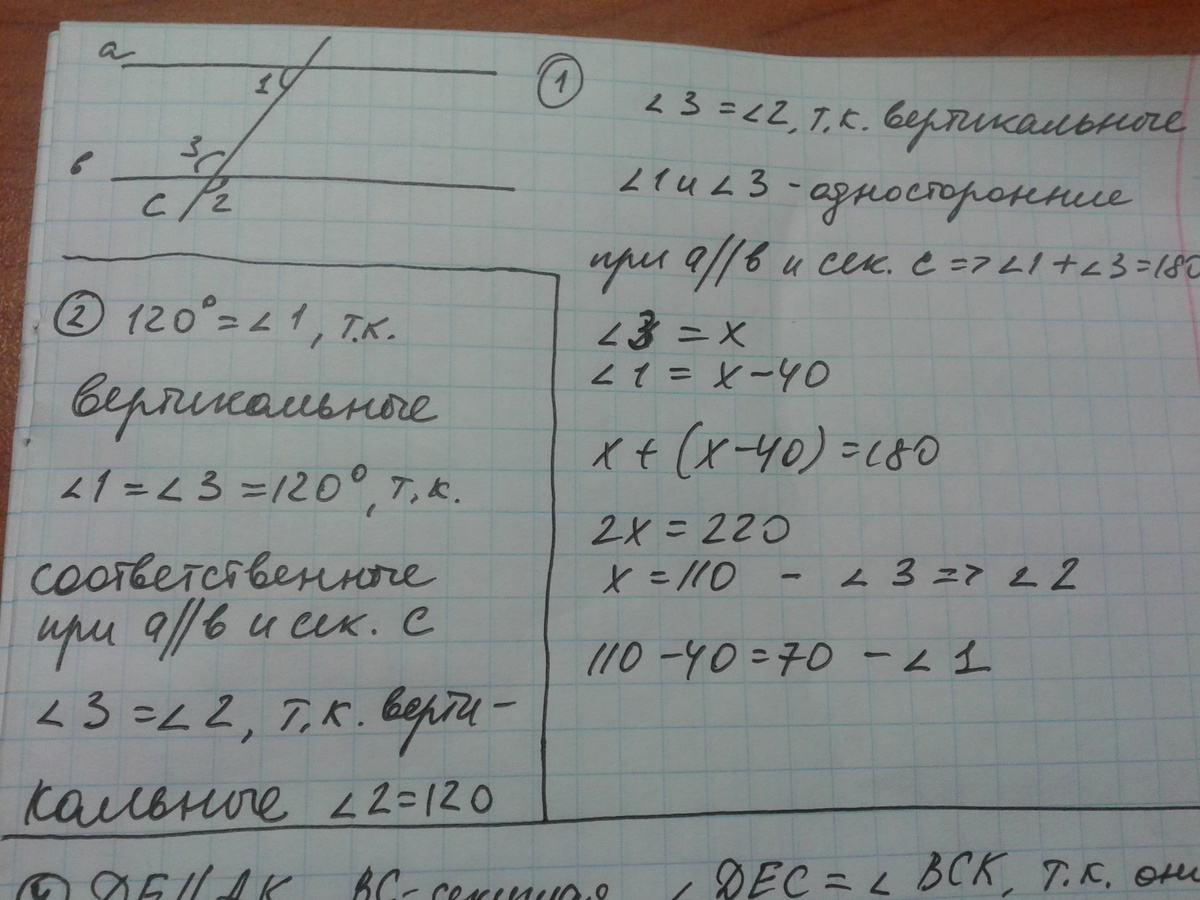 a
1
3
в
c
2
① ∠3 = ∠2, т.к. вертикальные
∠1 и ∠3 - односторонние
при a//в и сек. c => ∠1 + ∠3 = 180
∠3 = x
∠1 = x - 40
x + (x - 40) = 180
2x = 220
x = 110 - ∠3 => ∠2
110 - 40 = 70 - ∠1
② 120° = ∠1, т.к.
вертикальные
∠1 = ∠3 = 120°, т.к.
соответственные
при a//в и сек. c
∠3 = ∠2, т.к. верти-
кальные ∠2 = 120
DE // AK BC - секущая ∠DEC = ∠BCK, т.к. они